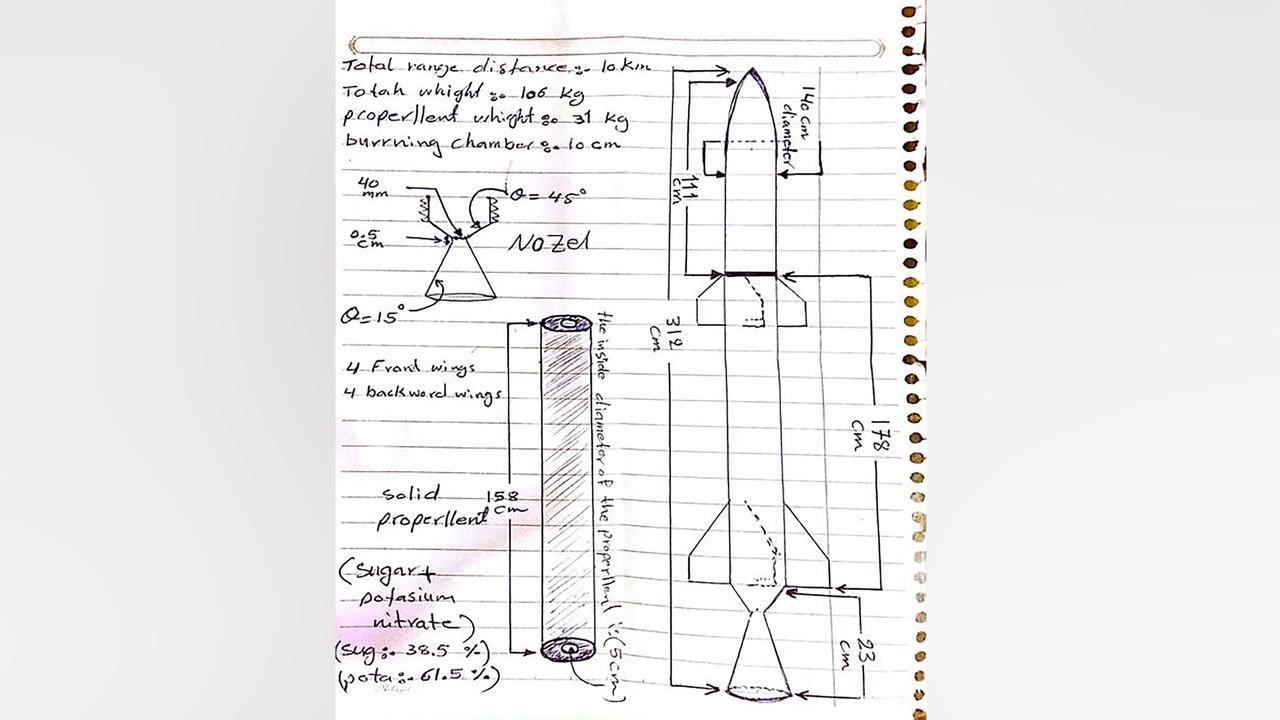 Total range distance :. 10 Km
Totah whight :. 106 Kg
properllent whight :. 31 Kg
burrning chamber :. 10 cm
40
mm
θ = 45°
0.5
cm
Nozel
θ = 15°
4 Front wings
4 backword wings
solid
properllent
158
cm
(sugar +
potasium
nitrate)
(sug :. 38.5 %)
(pota :. 61.5 %)
the inside diameter of the properllent :. (5 cm)
312
cm
111
cm
140 cm
diameter
178
cm
23
cm